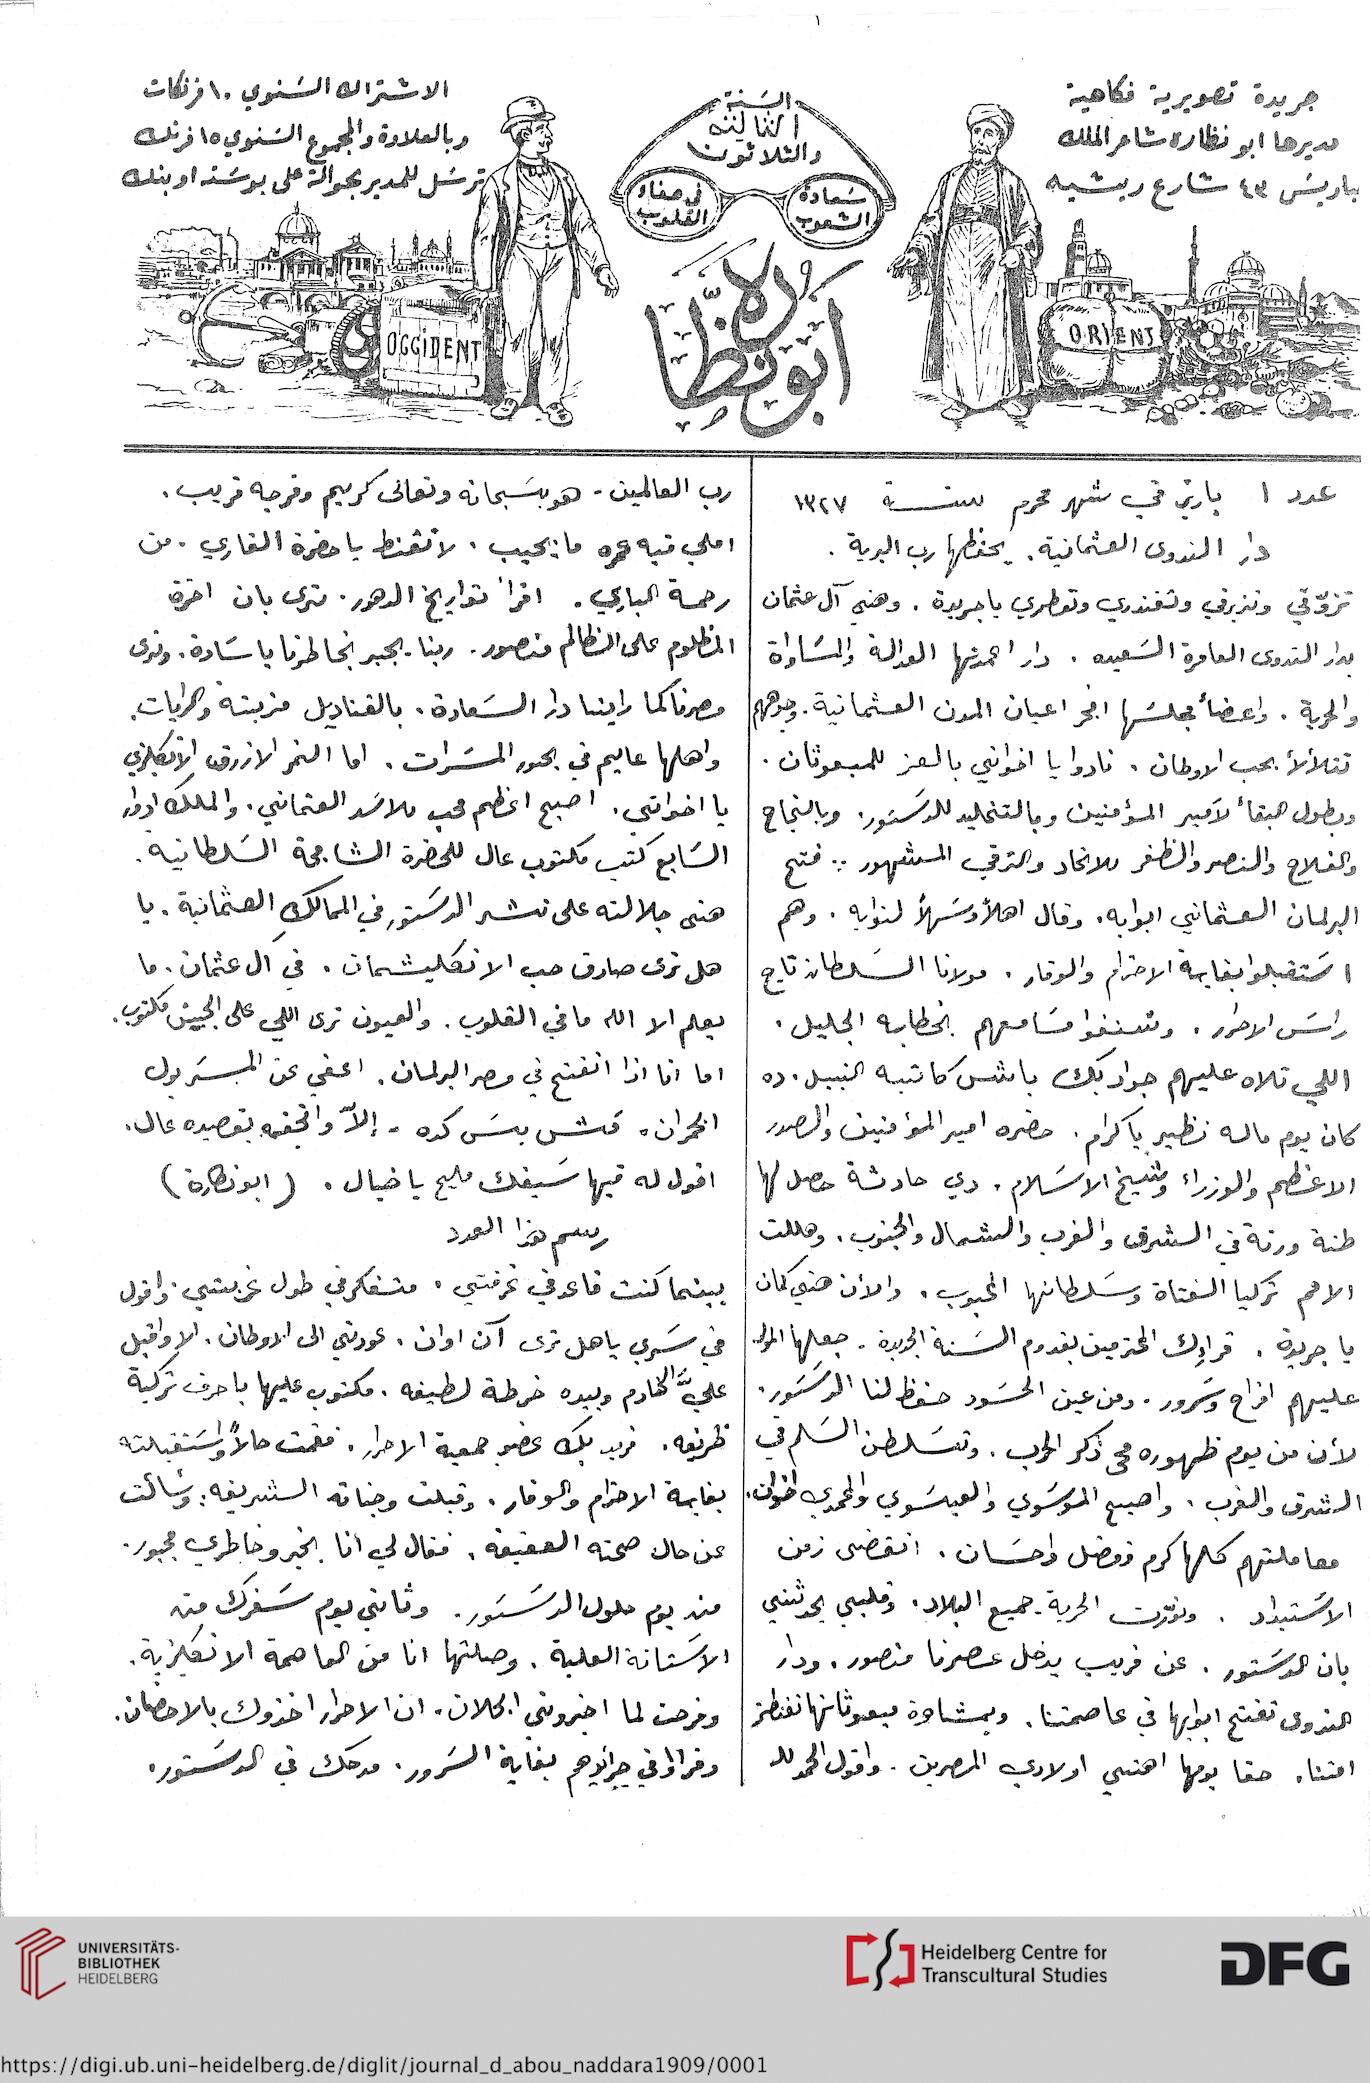 ١
جريدة تصويرية فكاهية
مديرها ابو نظارة شاعر الملك
بباريس ٤٣ شارع ريشيه
السنة
الثالثة
والثلاثون
سعادة
الشعوب
في صفاء
القلوب
ابو نظارة
الاشتراك السنوي ١٠ فرنكات
وبالعلاوة والمجموع السنوي ١٥ فرنك
ترسل للمدير بحوالة على بوسته او بنك
ORIENT
OCCIDENT
عدد ١ باريز في شهر محرم سنة ١٣٢٧
دار الندوى العثمانية. يحفظها رب البرية.
تزوّقي وتنيرفي وتغندري وتعطري يا جريدة. وهني آل عثمان
بدار الندوى العامرة السعيده. دار اعمدتها العدالة والمساواة
والحرية. واعضأ مجلسها افخر اعيان المدن العثمانية. وجوههم
تتلألأ بحب الاوطان. نادوا يا اخواني بالعز للمبعوثان.
وبطول البقأ لأمير المؤمنين وبالتخليد للدستور. وبالنجاح
والفلاح والنصر والظفر للاتحاد والترقي المشهور: فتح
البرلمان العثماني ابوابه. وقال اهلاً وسهلاً لنوابه. وهم
استقبلوا بغاية الاحترام والوقار. مولانا السلطان تاج
راس الاحرار. وشنفوا مسامعهم بخطابه الجليل.
اللي تلاه عليهم جواد بك باشكاتبه النبيل. ده
كان يوم ماله نظير يا كرام. حضره امير المؤمنين والصدر
الاعظم والوزراء وشيخ الاسلام. دي حادثة حصل لها
طنة ورنة في الشرق والغرب والشمال والجنوب. وهللت
الامم تركيا الفتاة وسلطانها المحبوب. والآن هني كمان
يا جريدة. قراءك المحترمين بقدوم السنة الجديدة. جعلها المولى
عليهم افراح وسرور. ومن عين الحسود حفظ لنا الدستور.
لأن من يوم ظهوره محى ذكر الحرب. وتسلطن السلم في
الشرق والغرب. واصبح الموسوي والعيسوي والمحمدي اخوان.
معاملتهم كلها كرم وفضل واحسان. انقضى زمن
الاستبداد. ونوّرت الحرية جميع البلاد. وقلبي يحدثني
بان الدستور. عن قريب يدخل عصرنا منصور. ودار
الندوى تفتح ابوابها في عاصمتنا. وبمشاورة مبعوثانها
امتنا. حقا يومها اهنّي اولادي المصريين. واقول الحمد لله
رب العالمين - هو سبحانه وتعالى كريم وفرجه قريب.
املي فيه عمره ما يخيب. لا تقنط يا حضرة القاري. من
رحمة الباري. اقرأ تواريخ الدهور. ترى بان اخرة
المظلوم على الظالم منصور. ربنا يجبر بخاطرنا يا سادة. ونرى
مصرنا كما راينا دار السعادة. بالقناديل مزينة والرايات.
واهلها عايم في بحور المسرات. اما النمر الازرق الانكليزي
يا اخواتي. اصبح اعظم محب للاسد العثماني. والملك ادوار
السابع كتب مكتوب عال للحضرة الشامخة السلطانية.
هنى جلالته على نشر الدستور في الممالك العثمانية. يا
هل ترى صادق حب الانكليشمان. في آل عثمان. ما
يعلم الا الله ما في القلوب. والعيون ترى اللي على الجبين مكتوب.
اما انا اذا انفتح في مصر البرلمان. اعفي عن المستر بول
الخمران. مش بس كده - إلاّ واتحفه بقصيده عال.
اقول له فيها سيفك مليح يا خيال. (ابو نظارة)
رسم هذا العدد
بينما كنت قاعد في غرفتي. متفكر في طول غربتي. واقول
في سري يا هل ترى آن اوان. عودتي الى الاوطان. الا واقبل
عليَّ الخادم وبيده خرطة لطيفه. مكتوب عليها باحرف تركية
ظريفه. فريد بك عضو جمعية الاحرار. فقمت حالاً واستقبلته
بغاية الاحترام والوقار. وقبلت وجناته الشريفه: وسألت
عن حال صحته العفيفه. فقال لي أنا بخير وخاطري مجبور.
منذ يوم حلول الدستور. وثاني يوم سفرك من
الاستانة العلية. وصلتها انا من العاصمة الانكليزية.
وفرحت لما اخبروني الخلان. ان الاحرار اخذوك بالاحضان.
وقرأوا في جرائدهم بغاية السرور. مدحك في الدستور.
UNIVERSITÄTS-
BIBLIOTHEK
HEIDELBERG
Heidelberg Centre for
Transcultural Studies
DFG
https://digi.ub.uni-heidelberg.de/diglit/journal_d_abou_naddara1909/0001